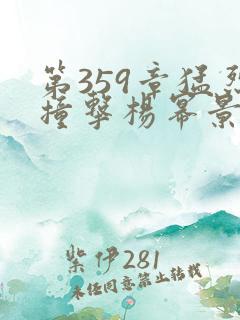 第359章猛烈
撞擊楊冪景
紫伊281
未经同意禁止转载